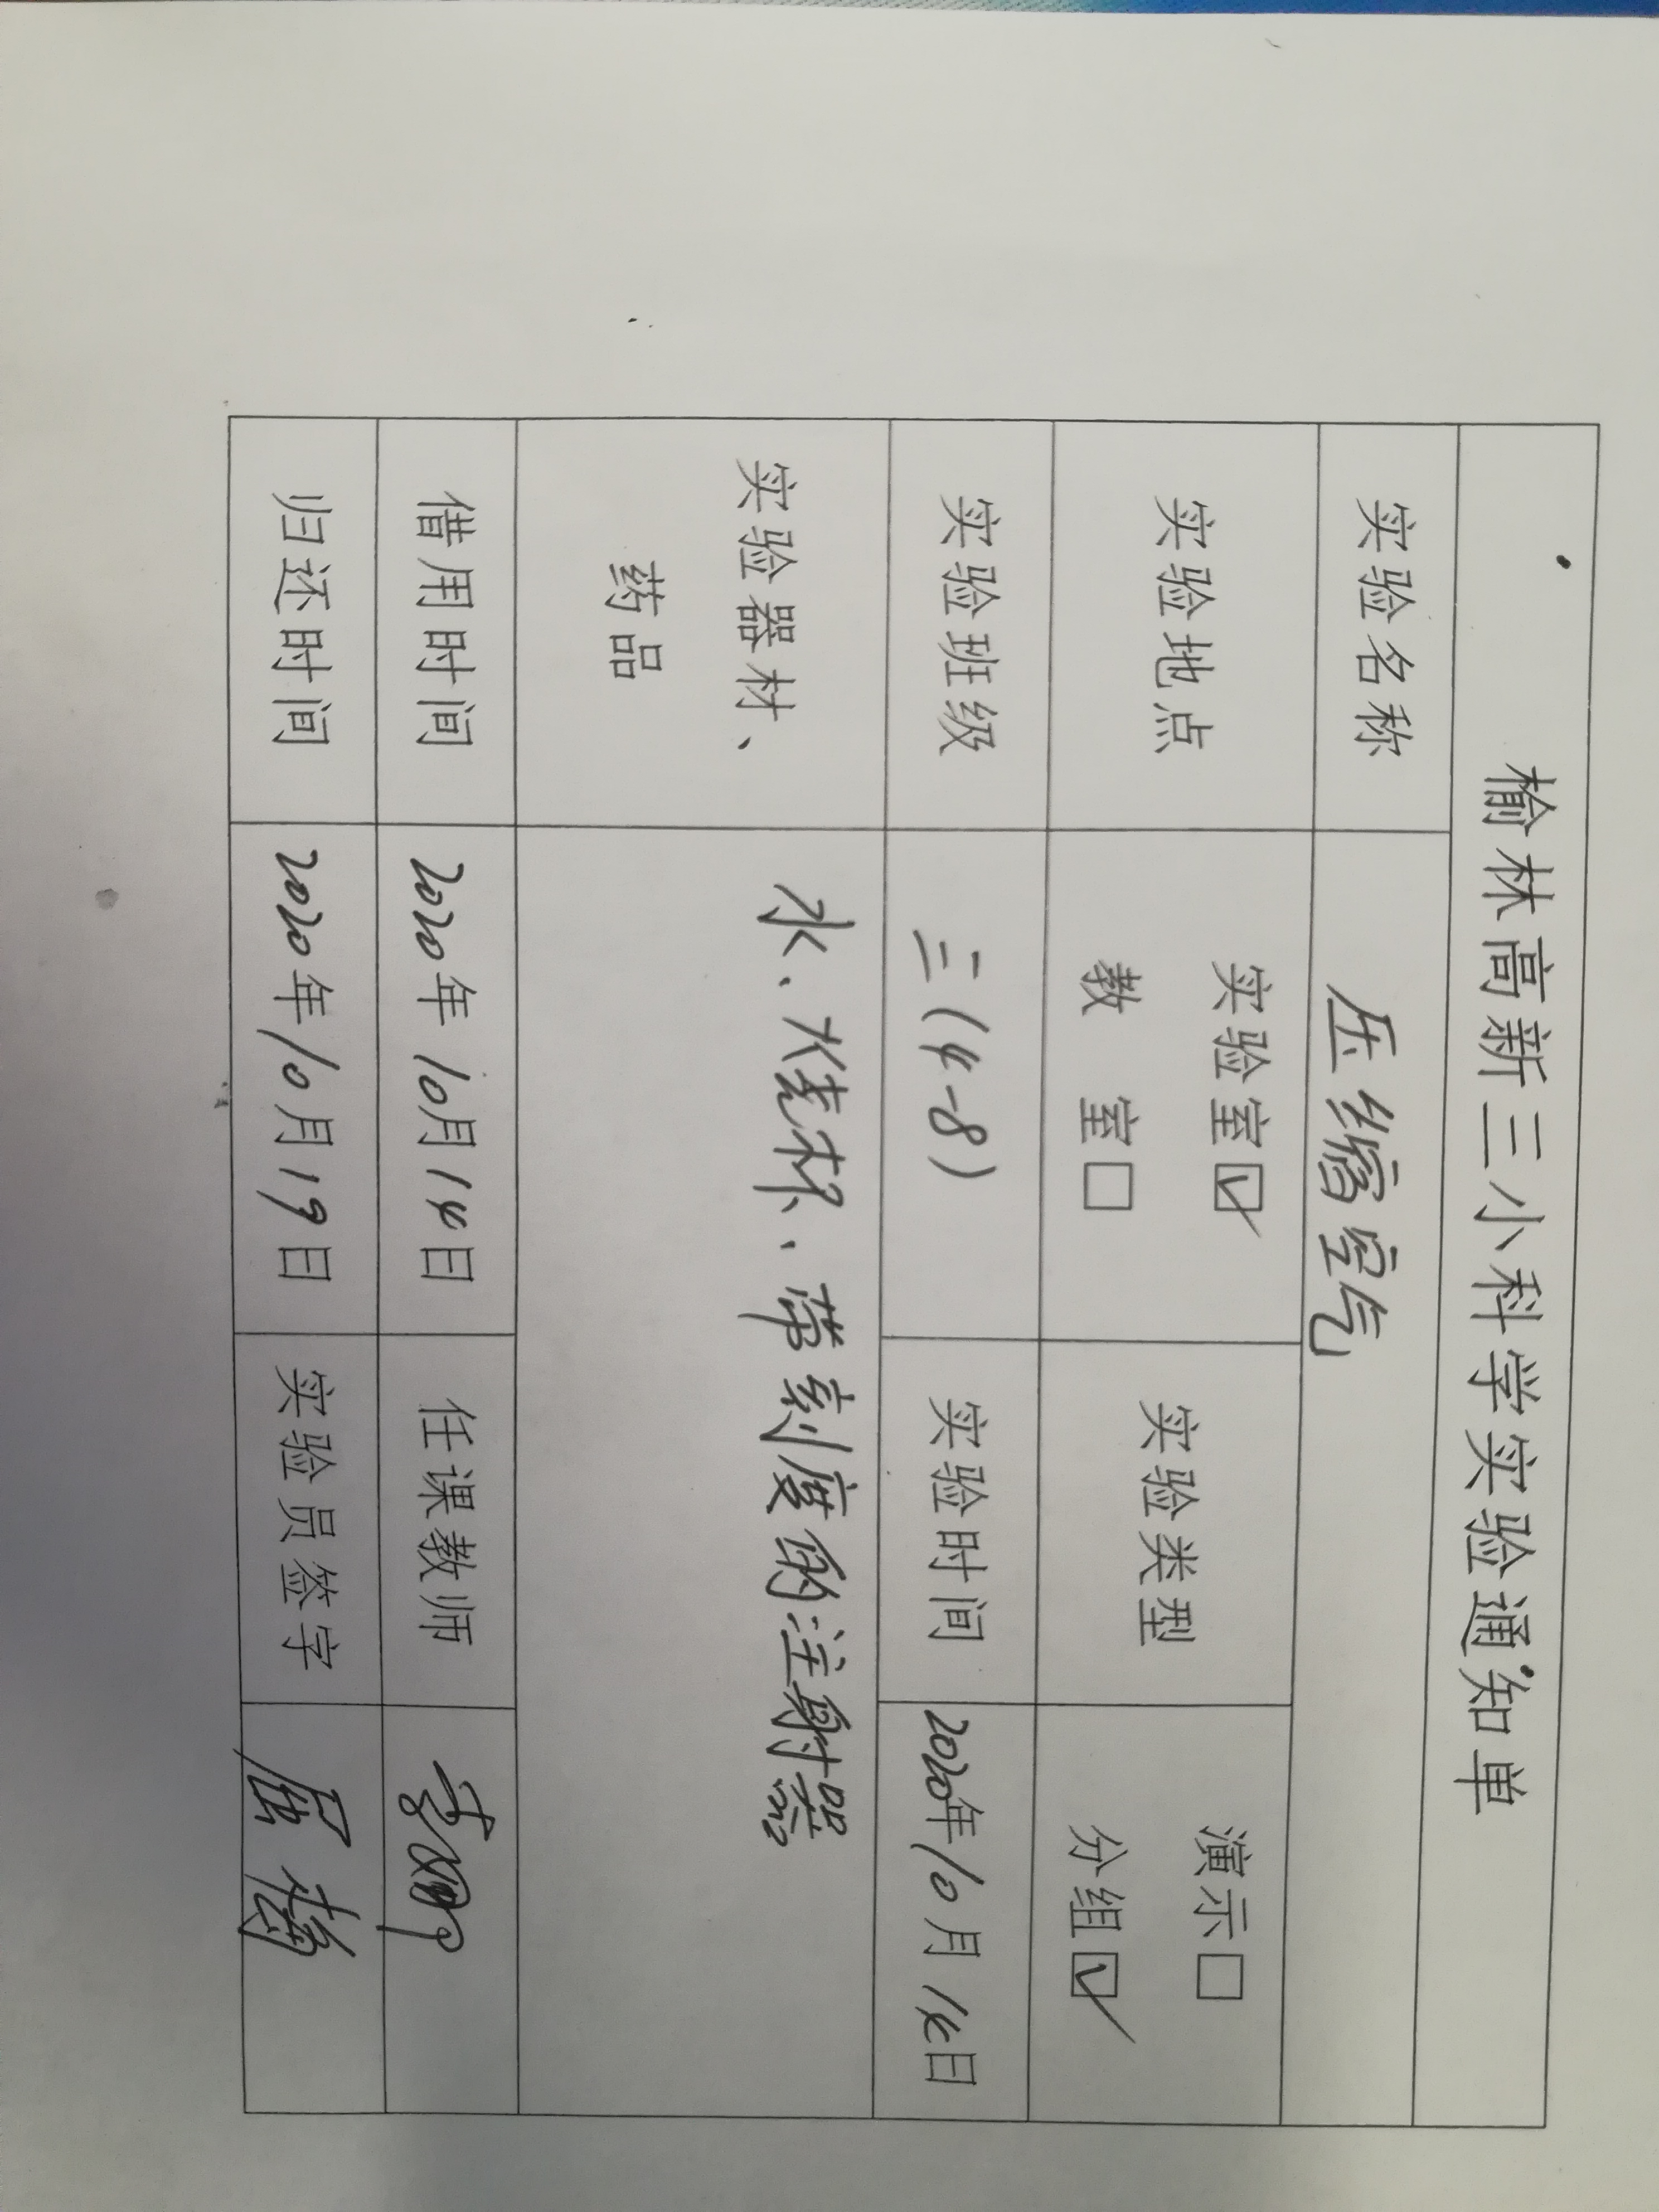 榆林高新三小科学实验通知单
实验名称 压缩空气
实验地点 实验室☑ 教 室□ 实验类型 演示□ 分组☑
实验班级 三(4-8) 实验时间 2020年10月14日
实验器材、药品 水、烧杯、带刻度的注射器
借用时间 2020年10月14日 任课教师
归还时间 2020年10月19日 实验员签字 屈楠